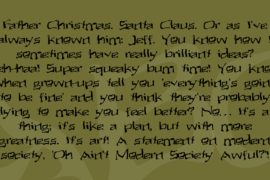 Father Christmas. Santa Claus. Or as I've
always known him: Jeff. You know how I
sometimes have really brilliant ideas?
Heh-haa! Super squeaky bum time! You know
when grown-ups tell you 'everything's going
to be fine' and you think they're probably
lying to make you feel better? No... It's a
thing; it's like a plan, but with more
greatness. It's art! A statement on modern
society, 'Oh Ain't Modern Society Awful?'!